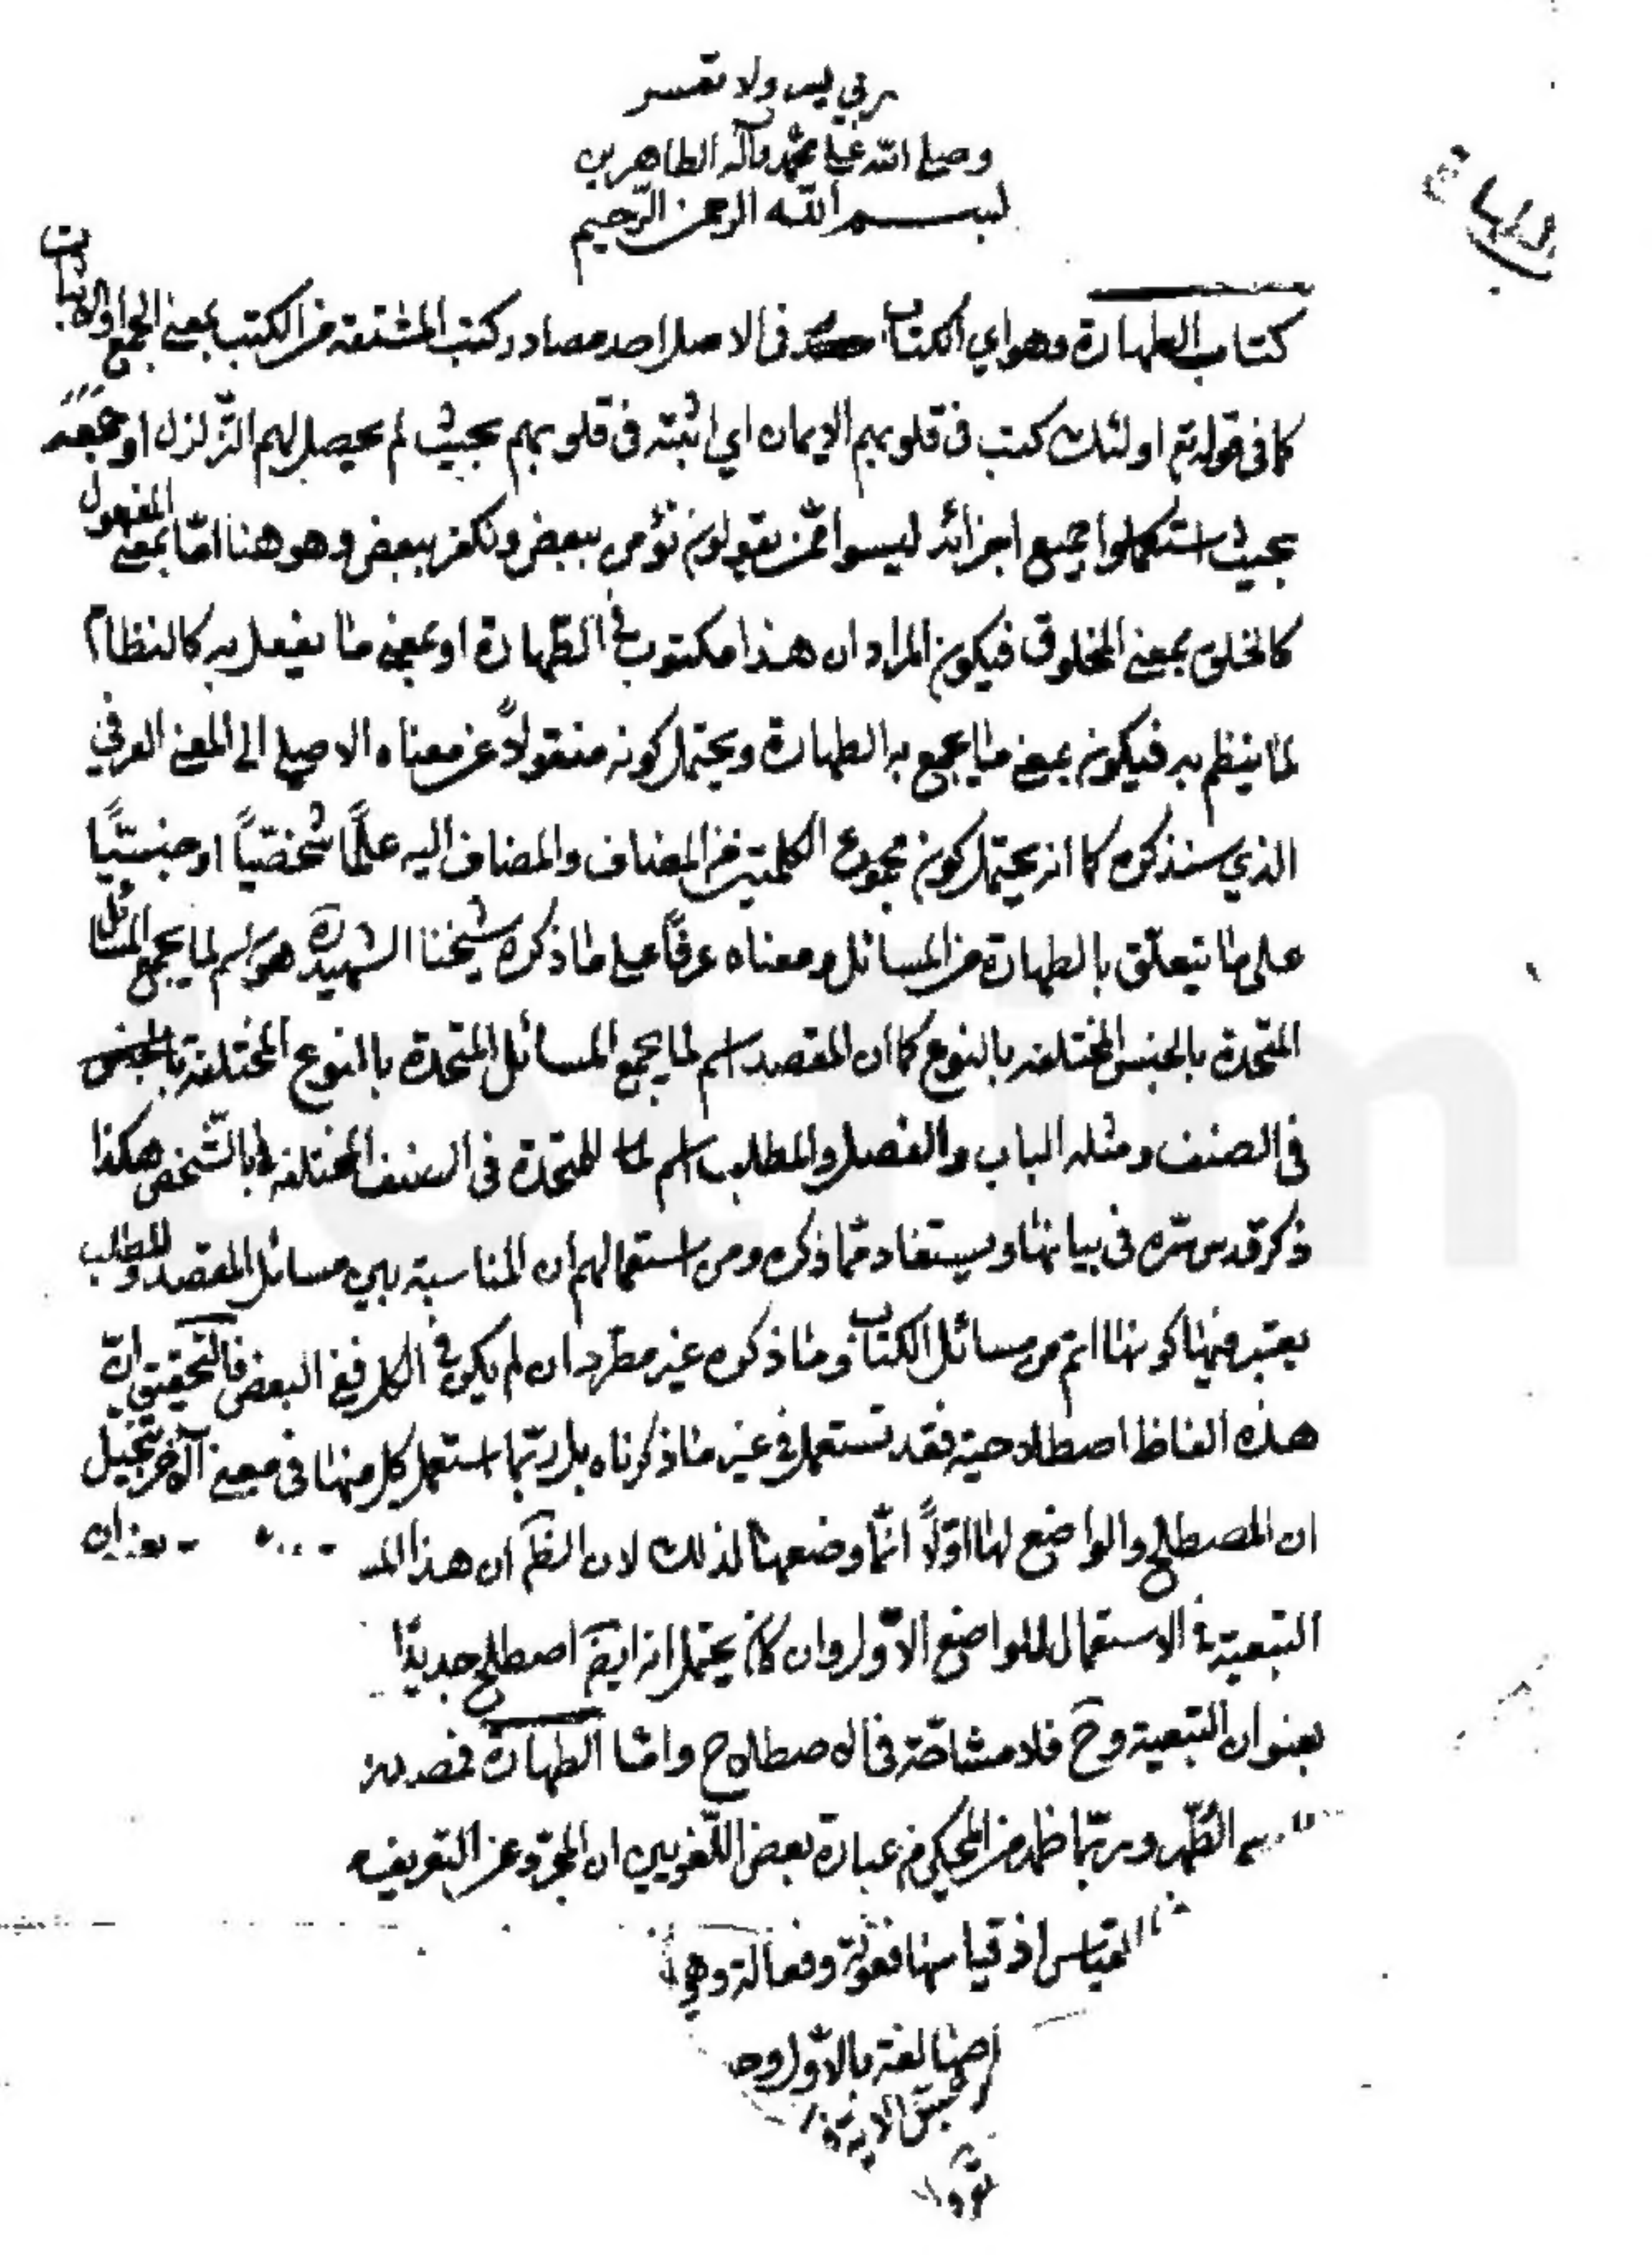 ربي يسر ولا تعسر
وصلى الله على محمد وآله الطاهرين
بسم الله الرحمن الرحيم
الطهارة
كتاب الطهارة وهو اي الكتاب في الاصل احد مصادر كتب المشتقة من الكتب بمعنى الجمع او الاثبات
كما في قوله تع اولئك كتب في قلوبهم الايمان اي اثبته في قلوبهم بحيث لم يحصل لهم التزلزل او جمعه
بحيث استكملوا جميع اجزائه ليسوا ممن يقولون نؤمن ببعض ونكفر ببعض وهو هنا امّا بمعنى المفعول
كالخلق بمعنى المخلوق فيكون المراد ان هذا مكتوب في الطهارة او بمعنى ما يفعل به كالنظام
لما ينظم به فيكون بمعنى ما يجمع به الطهارة ويحتمل كونه منقولاً عن معناه الاصلي الى المعنى العرفي
الذي سنذكره كما انه يحتمل كون مجموع الكلمتين من المضاف والمضاف اليه علمًا شخصيًّا او جنسيًّا
على ما يتعلق بالطهارة من المسائل ومعناه عرفًا على ما ذكره شيخنا الشهيد ره هو اسم لما يجمع المسائل
المتحدة بالجنس المختلفة بالنوع كما ان المقصد اسم لما يجمع المسائل المتحدة بالنوع المختلفة
في الصنف ومثله الباب والفصل والمطلب اسم لما للمتحدة في الصنف المختلفة بالشخص هكذا
ذكر قدس سره في بيانها ويستفاد مما ذكره ومن استعمالهم ان المناسبة بين مسائل المقصد والمطلب
يعتبر فيها كونها اتم من مسائل الكتاب وما ذكره غير مطّرد ان لم يكن في الكل ففي البعض فالتحقيق انّ
هذه الفاظ اصطلاحية فقد تستعمل في غير ما ذكرناه بل ربّما استعمل كل منها في معنى الآخر بتخيل
ان المصطلح والواضع لها اوّلاً انّما وضعها لذلك لان الظ ان هذا
التبعية في الاستعمال للواضع الاوّل وان كان يحتمل انه ايض اصطلح جديدًا
بعنوان التبعية وح فلا مشاحّة في الاصطلاح وامّا الطهارة فمصدر
الطهر وربّما ظهر من المحكي من عبارة بعض اللّغويين ان المجرد عن التعريف
القياس اذ قياسها فعولة وفعالة وهي
بالاوّل